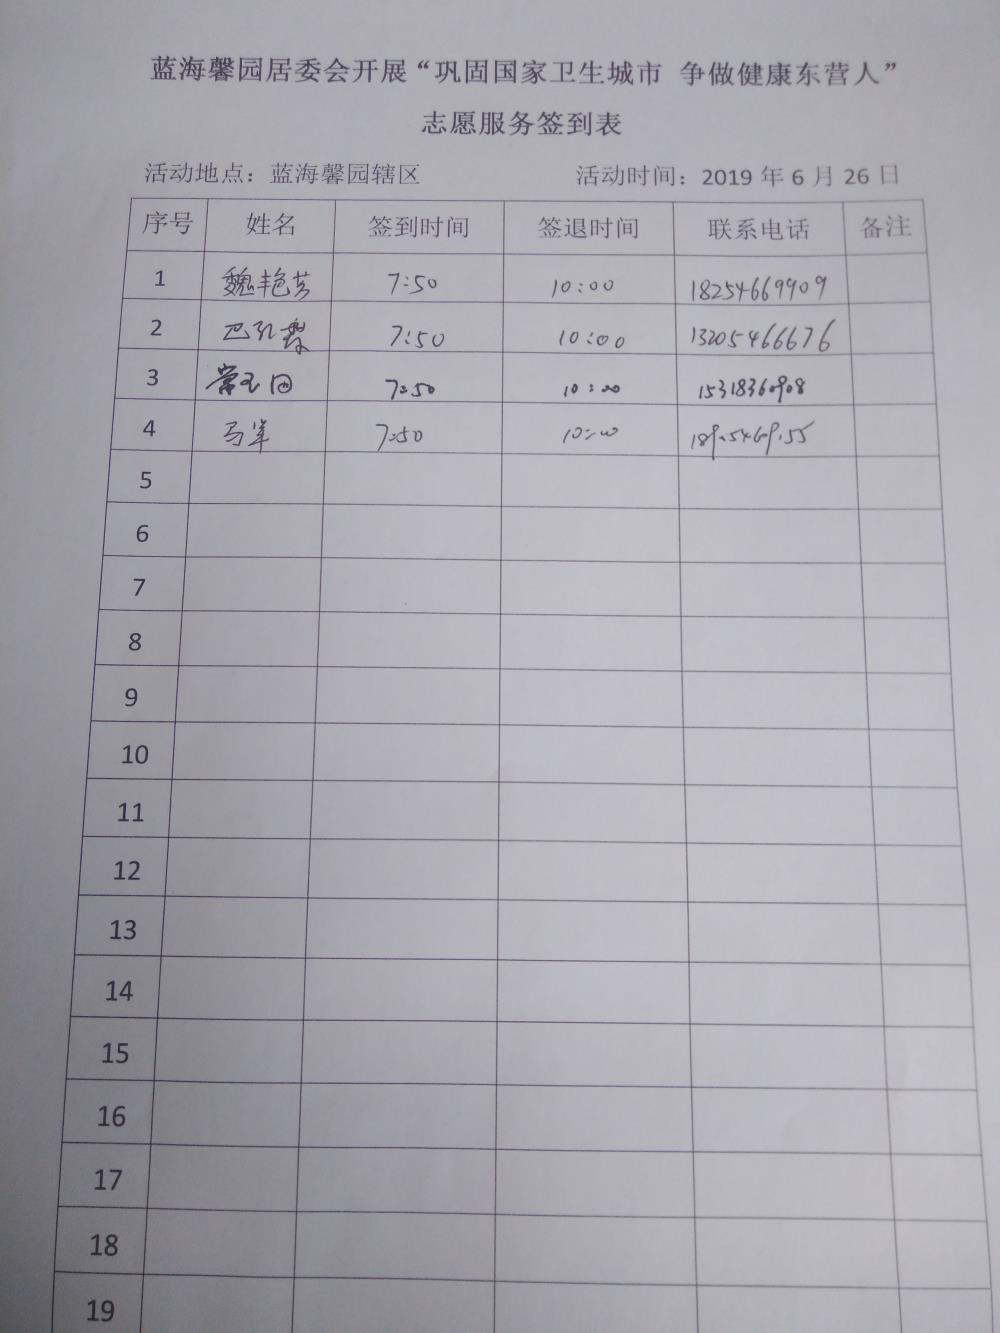 蓝海馨园居委会开展“巩固国家卫生城市 争做健康东营人”
志愿服务签到表
活动地点：蓝海馨园辖区 活动时间：2019 年 6 月 26 日
序号 姓名 签到时间 签退时间 联系电话 备注
1 魏艳芳 7:50 10:00 18254669909
2 7:50 10:00 13205466676
3 7:50 10:00 15318360908
4 7:50 10:00
5
6
7
8
9
10
11
12
13
14
15
16
17
18
19